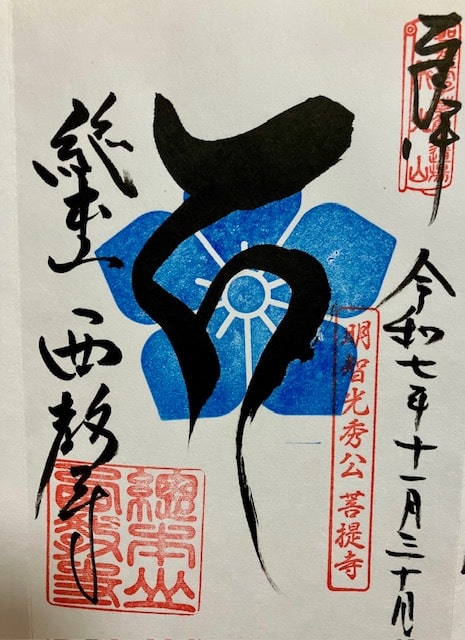 奉拝
令和七年十一月三十日
明智光秀公 菩提寺
総本山 西教寺
總本山
西教寺